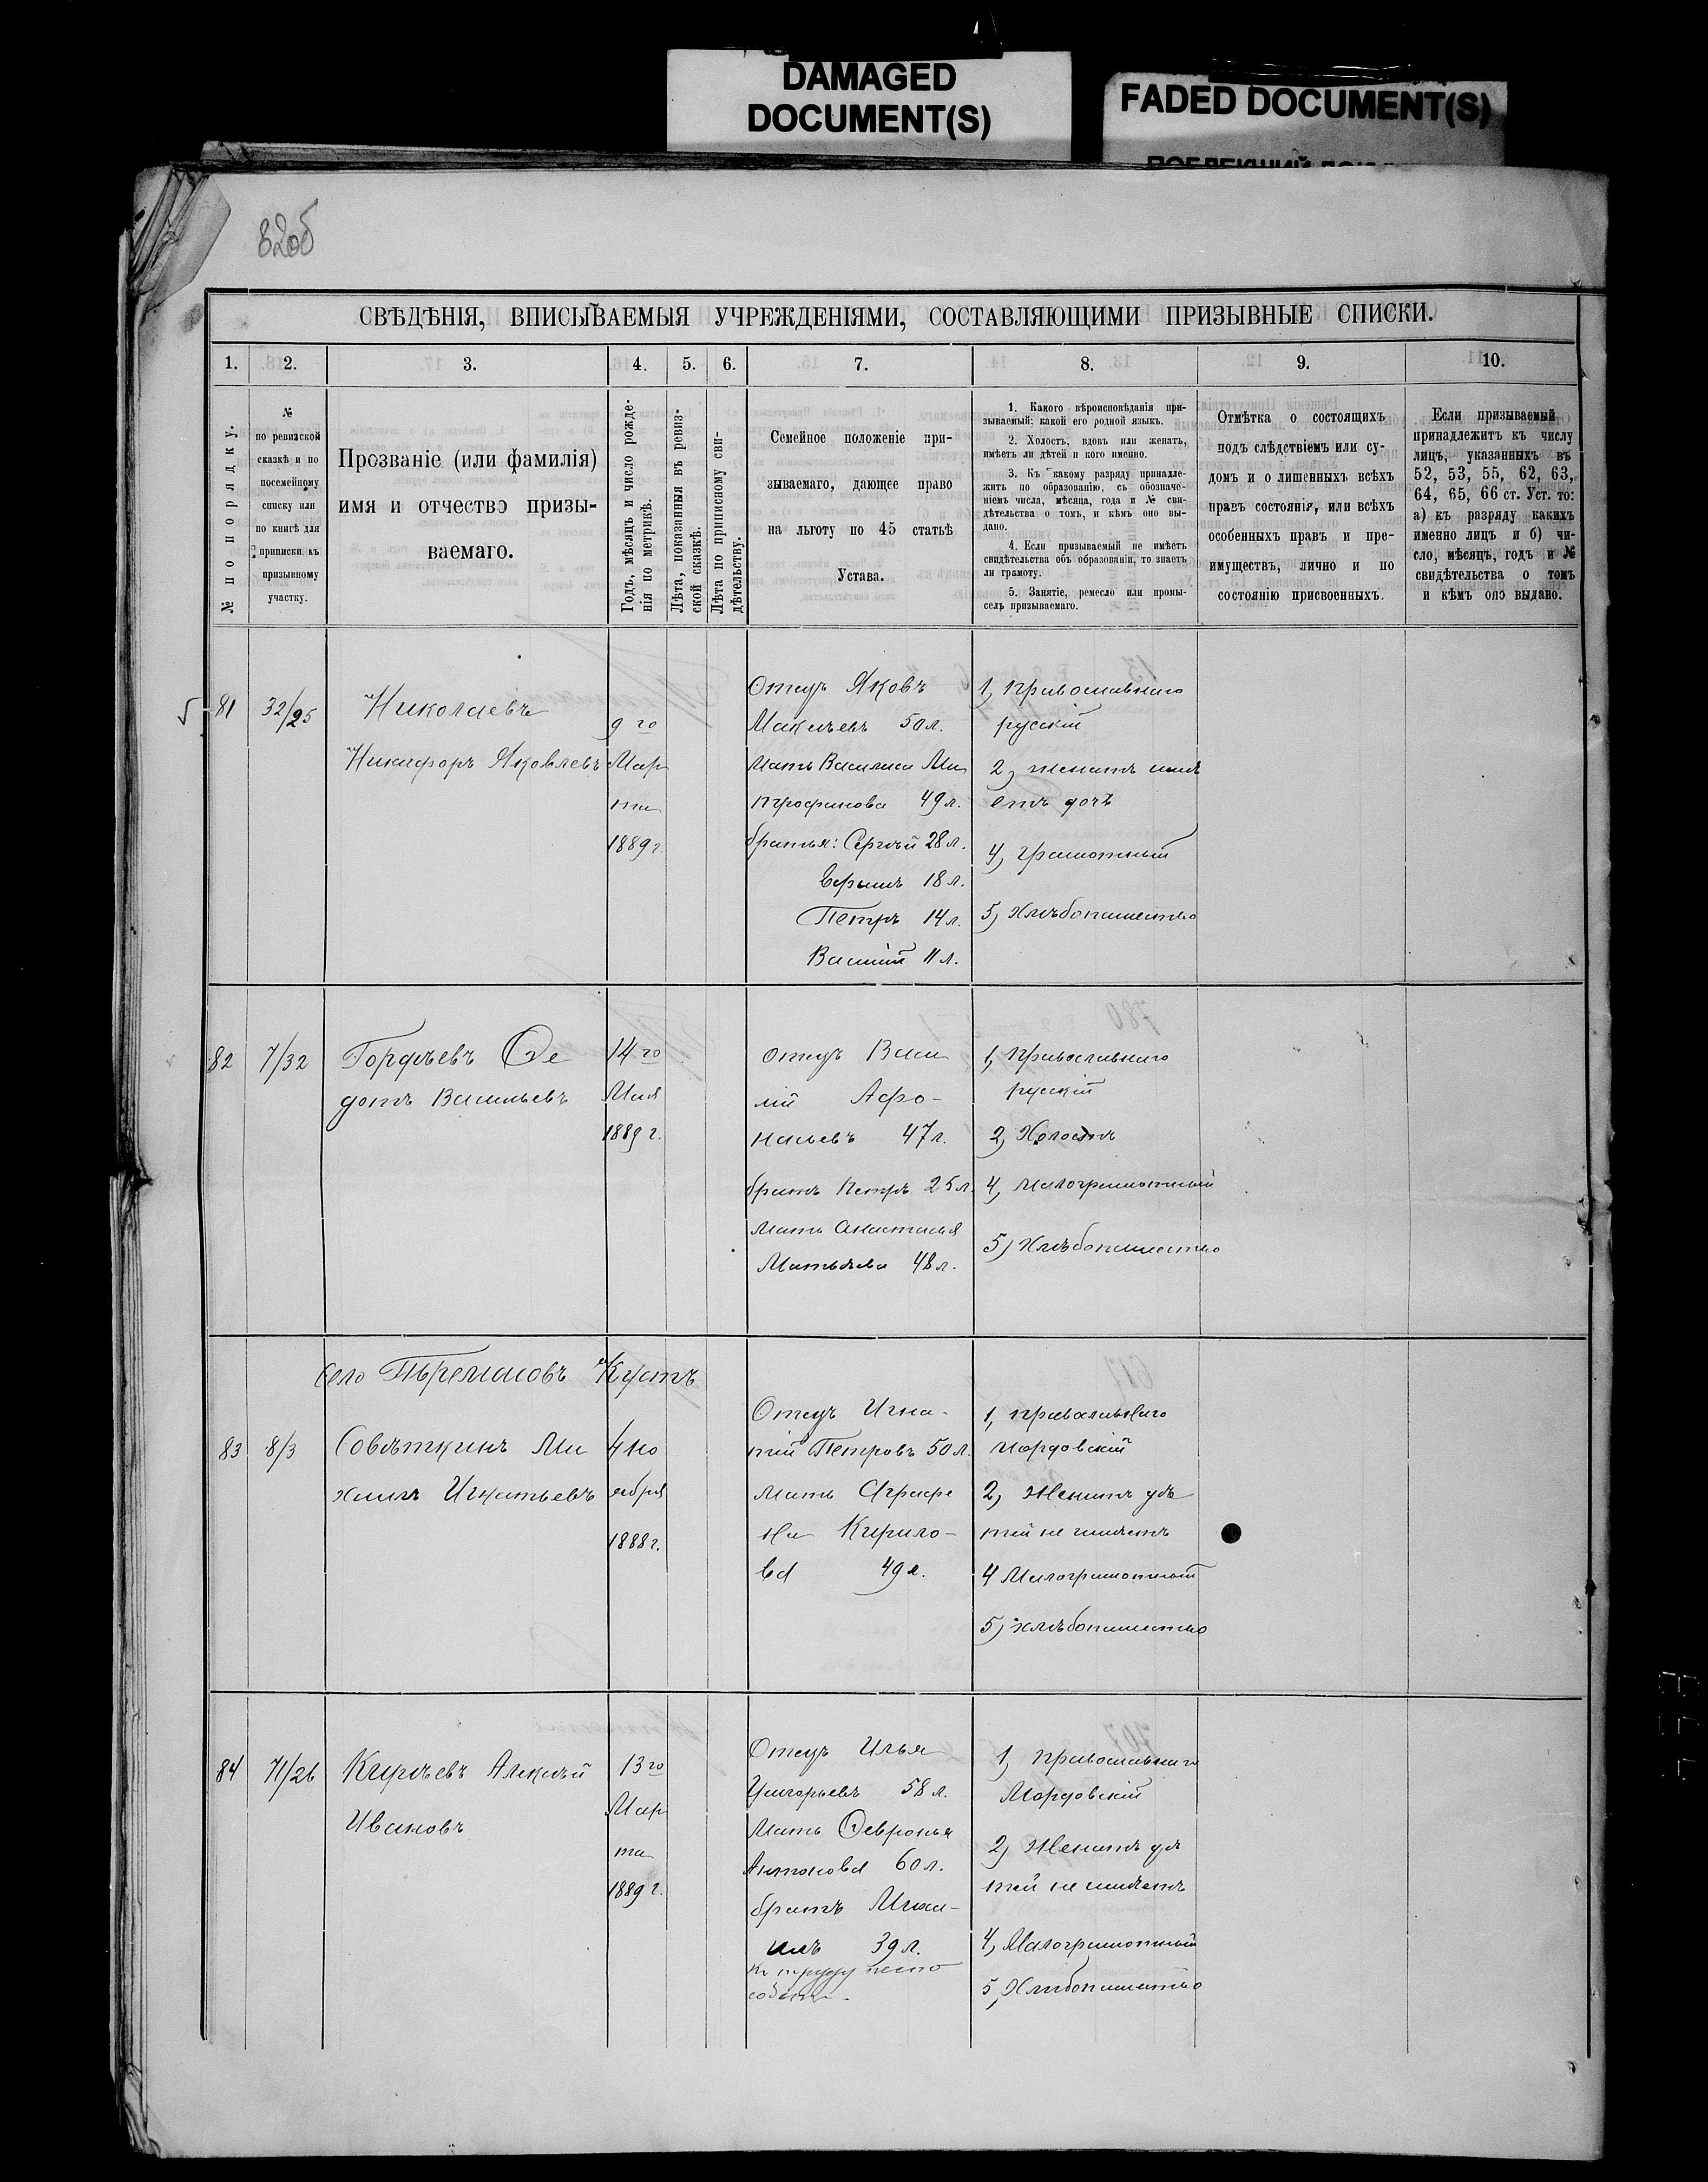 DAMAGED
DOCUMENT(S)
FADED DOCUMENT(S)
82об
СВѢДѢНІЯ, ВПИСЫВАЕМЫЯ УЧРЕЖДЕНІЯМИ, СОСТАВЛЯЮЩИМИ ПРИЗЫВНЫЕ СПИСКИ.
1. 2. 3. 4. 5. 6. 7. 8. 9. 10.
№ по порядку.
№
по ревизской
сказкѣ и по
посемейному
списку или
по книгѣ для
приписки къ
призывному
участку.
Прозваніе (или фамилія)
имя и отчество призы-
ваемаго.
Годъ, мѣсяцъ и число рожде-
нія по метрикѣ.
Лѣта, показанныя въ ревиз-
ской сказкѣ.
Лѣта по приписному сви-
дѣтельству.
Семейное положеніе при-
зываемаго, дающее право
на льготу по 45 статьѣ
Устава.
1. Какого вѣроисповѣданія при-
зываемый; какой его родной языкъ.
2. Холостъ, вдовъ или женатъ,
имѣетъ ли дѣтей и кого именно.
3. Къ какому разряду принадле-
житъ по образованію, съ обозначе-
ніемъ числа, мѣсяца, года и № сви-
дѣтельства о томъ, и кѣмъ оно вы-
дано.
4. Если призываемый не имѣетъ
свидѣтельства объ образованіи, то знаетъ
ли грамоту.
5. Занятіе, ремесло или промы-
селъ призываемаго.
Отмѣтка о состоящихъ
подъ слѣдствіемъ или су-
домъ и о лишенныхъ всѣхъ
правъ состоянія, или всѣхъ
особенныхъ правъ и пре-
имуществъ, лично и по
состоянію присвоенныхъ.
Если призываемый
принадлежитъ къ числу
лицъ, указанныхъ въ
52, 53, 55, 62, 63,
64, 65, 66 ст. Уст. то:
а) къ разряду какихъ
именно лицъ и б) чи-
сло, мѣсяцъ, годъ и №
свидѣтельства о томъ
и кѣмъ оно выдано.
81
32/25
Николаевъ
Никифоръ Яковлевъ
9 го
Мар
та
1889 г.
Отецъ Яковъ
50 л.
Мать Василиса Ми
трофанова 49 л.
братья: Сергѣй 28 л.
18 л.
Петръ 14 л.
Василій 11 л.
1, Православнаго
русскій
2, женатъ имѣ
етъ дочь
4, грамотный
5, Хлѣбопашество
82
7/32
Гордѣевъ Ѳе
дотъ Васильевъ
14 го
Мая
1889 г.
отецъ Васи
лій Афо-
насьевъ 47 л.
братъ Петръ 25 л.
Мать Анастасья
Матвѣева 48 л.
1, Православнаго
русскій
2, Холостъ
4, Малограмотный
5, Хлѣбопашество
село Кустъ
83
8/3
Совѣткинъ Ми
хаилъ Игнатьевъ
4 но
ября
1888 г.
Отецъ Игна-
тій Петровъ 50 л.
Мать Аграфе
на Кирило-
ва 49 л.
1, православнаго
мордовскій
2, Женатъ дѣ
тей не имѣетъ
4 Малограмотный
5, хлѣбопашество
84
71/26
Кирѣевъ Алексѣй
Ивановъ
13 го
Мар
та
1889 г.
Отецъ Илья
Григорьевъ 58 л.
Мать Ѳевронья
Антонова 60 л.
братъ Миха-
илъ 39 л.
къ труду неспо
собенъ.
1, Православнаго
Мордовскій
2, Женатъ дѣ
тей не имѣетъ
4, Малограмотный
5, Хлѣбопашество